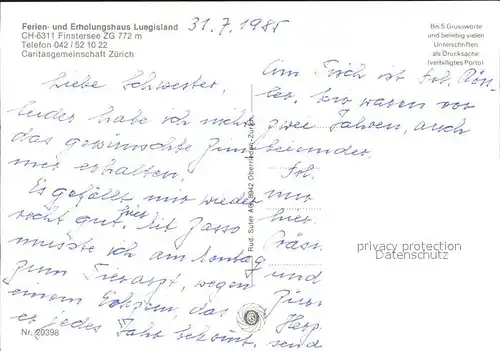 Ferien- und Erholungshaus Luegisland
CH-6311 Finstersee ZG 772 m
Telefon 042 / 52 10 22
Caritasgemeinschaft Zürich
31.7.1985
Bis 5 Grussworte
und beliebig vielen
Unterschriften
als Drucksache
(verbilligtes Porto)
Liebe Schwester,
leider habe ich nicht
das gewünschte Zim-
mer erhalten.
Es gefällt mir wieder
recht gut hier. Mit
musste ich am Montag
zum Tierarzt, wegen
einem Ekzem, das
es jedes Jahr bekommt.
Am Tisch ist Frl.
wir waren vor
zwei Jahren, auch
beieinander.
Frl.
nur
hier.
und
Herz
send
Rud. Suter AG, 8942 Oberrieden-Zürich
privacy protection
Datenschutz
Nr. 20398